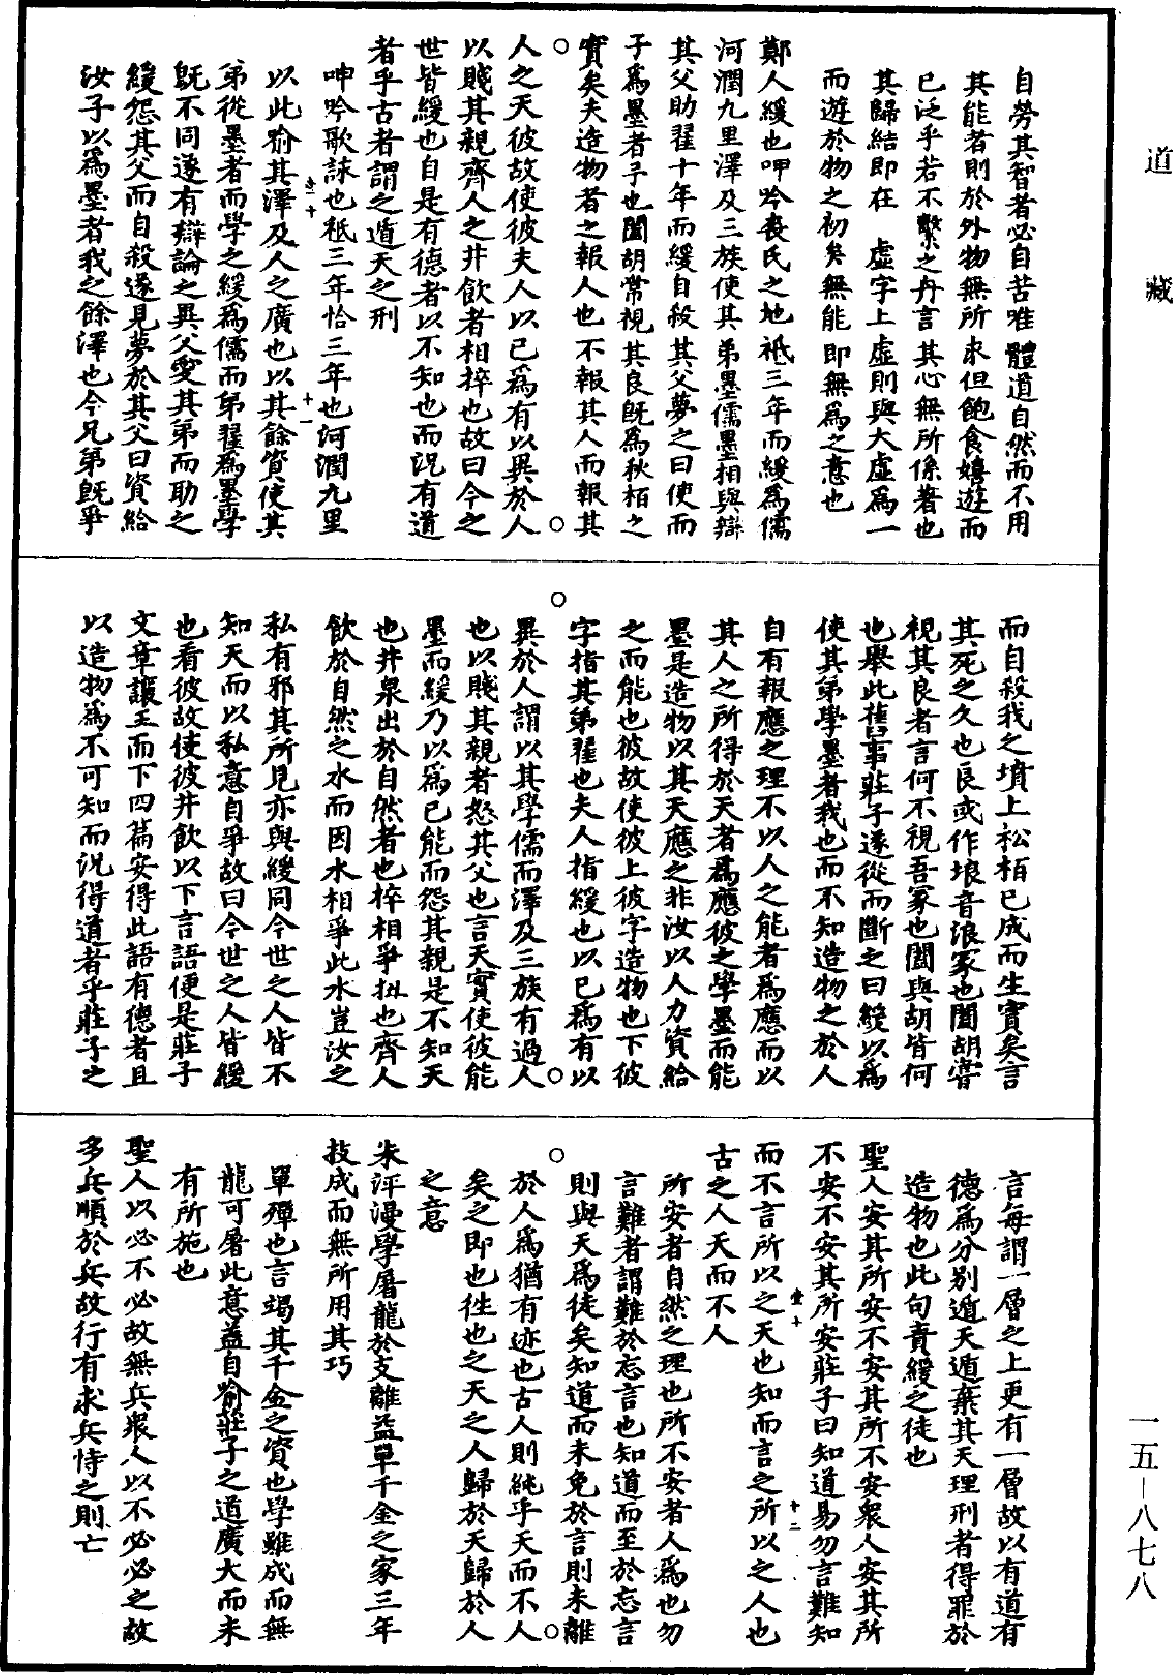 道藏
自勞其智者必自苦唯體道自然而不用
其能者則於外物無所求但飽食嬉遊而
已泛乎若不繫之舟言其心無所係著也
其歸結即在虛字上虛則與大虛為一
而遊於物之初矣無能即無為之意也
鄭人緩也呻吟裘氏之地祗三年而緩為儒
河潤九里澤及三族使其弟墨儒墨相與辯
其父助翟十年而緩自殺其父夢之曰使而
子為墨者予也闔胡嘗視其良既為秋栢之
實矣夫造物者之報人也不報其人而報其
人之天彼故使彼夫人以已為有以異於人
以賤其親齊人之井飲者相捽也故曰今之
世皆緩也自是有德者以不知也而況有道
者乎古者謂之遁天之刑
呻吟歌詠也祗三年恰三年也河潤九里
以此喻其澤及人之廣也以其餘資使其
弟從墨者而學之緩為儒而弟翟為墨學
既不同遂有辯論之異父愛其弟而助之
緩怨其父而自殺遂見夢於其父曰資給
汝子以為墨者我之餘澤也今兄弟既爭
而自殺我之墳上松栢已成而生實矣言
其死之久也良或作埌音浪冢也闔胡嘗
視其良者言何不視吾冢也闔與胡皆何
也舉此舊事莊子遂從而斷之曰緩以為
使其弟學墨者我也而不知造物之於人
自有報應之理不以人之能者為應而以
其人之所得於天者為應彼之學墨而能
墨是造物以其天應之非汝以人力資給
之而能也彼故使彼上彼字造物也下彼
字指其弟翟也夫人指緩也以已為有以
異於人謂以其學儒而澤及三族有過人
也以賤其親者怒其父也言天實使彼能
墨而緩乃以為已能而怨其親是不知天
也井泉出於自然者也捽相爭扭也齊人
飲於自然之水而因水相爭此水豈汝之
私有邪其所見亦與緩同今世之人皆不
知天而以私意自爭故曰今世之人皆緩
也看彼故使彼井飲以下言語便是莊子
文章讓王而下四篇安得此語有德者且
以造物為不可知而況得道者乎莊子之
言每謂一層之上更有一層故以有道有
德為分別遁天遁棄其天理刑者得罪於
造物也此句責緩之徒也
聖人安其所安不安其所不安眾人安其所
不安不安其所安莊子曰知道易勿言難知
而不言所以之天也知而言之所以之人也
古之人天而不人
所安者自然之理也所不安者人為也勿
言難者謂難於忘言也知道而至於忘言
則與天為徒矣知道而未免於言則未離
於人為猶有迹也古人則純乎天而不人
矣之即也往也之天之人歸於天歸於人
之意
朱泙漫學屠龍於支離益單千金之家三年
技成而無所用其巧
單殫也言竭其千金之資也學雖成而無
龍可屠此意蓋自喻莊子之道廣大而未
有所施也
聖人以必不必故無兵眾人以不必必之故
多兵順於兵故行有求兵恃之則亡
一五—八七八